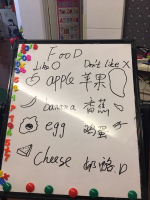 FOOD
Like O Don't like X
apple 苹果
banana 香蕉
egg 鸡蛋
Cheese 奶酪